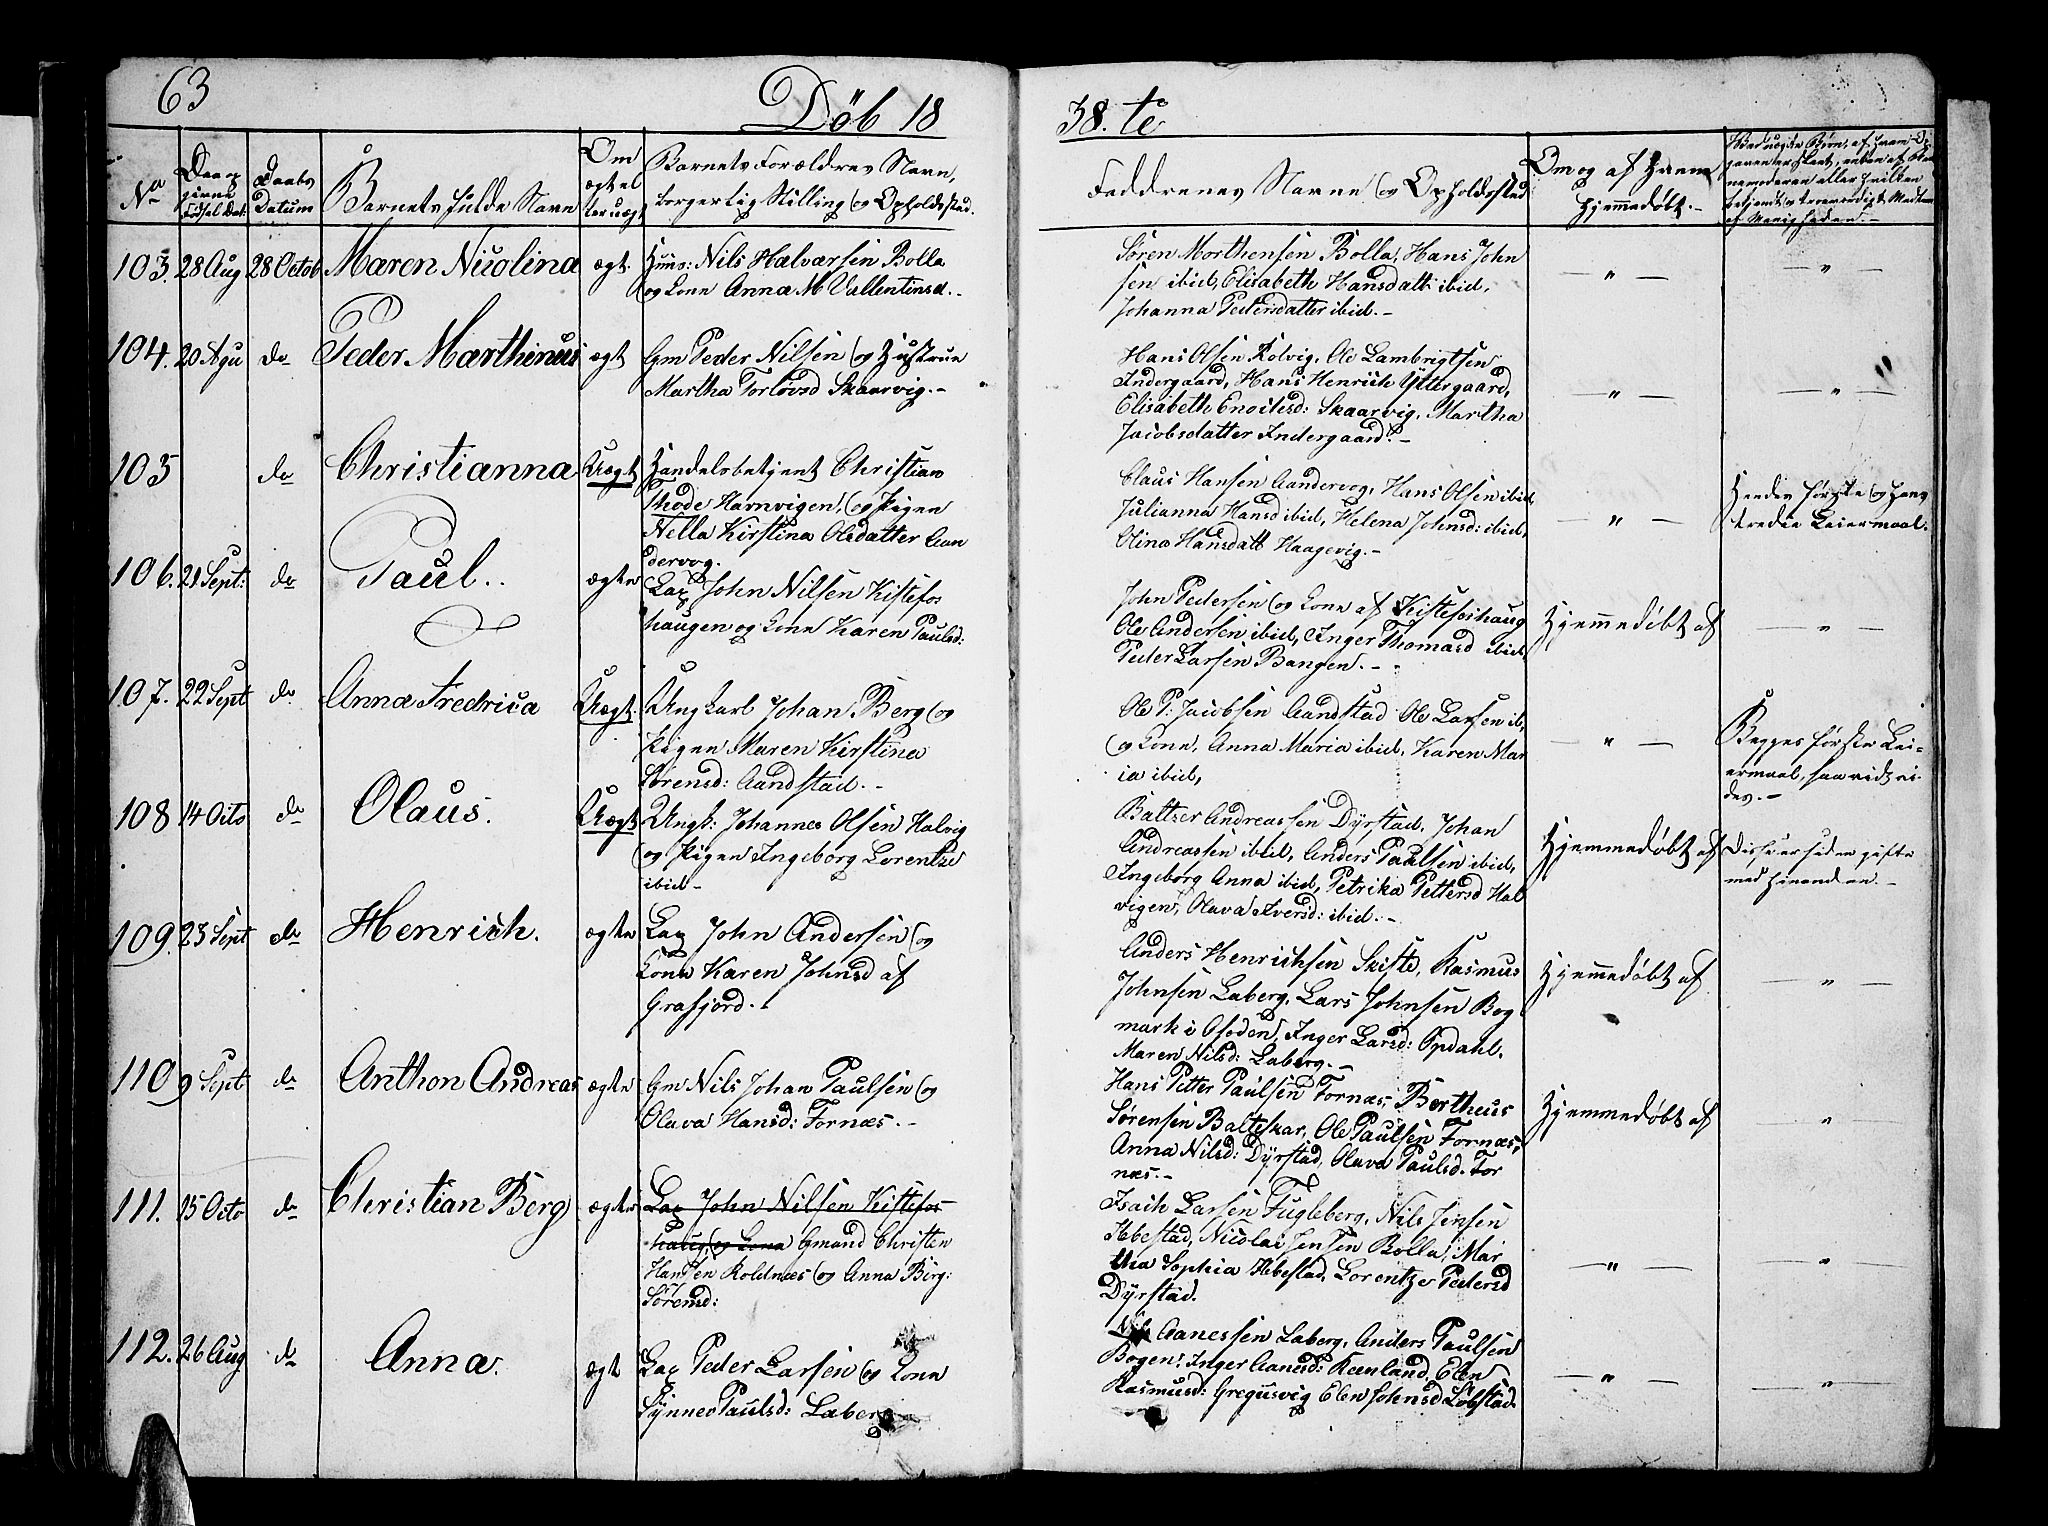 63
Döb 18
38.te
No
Daa og
givne
födsel Dat:
Daabs
Datum
Barnets fulde Navn
Om
ægte el
ler uægt
Barnets Forældres Navn,
borgerlig Stilling og Opholdsstad.
Faddrenes Navne og Opholdsstad
Om og af hvem
hjemmedöbt.-
103. 28 Aug 28 Octob Maren Nicolina ægt. Huus: Nils Halvorsen Bolla
og Kone Anna M Vallentinsd.-
Sören Morthensen Bolla, Hans John
sen ibid, Elisabeth Hansdatt ibid,
Johanna Pedersdatter ibid.-
104. 20 Agu do Peder Marthinus ægt Gm Peder Nilsen og Hustrue
Martha Torlövsd Skaarvig.-
Hans Olsen Rolvig, Ole Lambrigtsen
Indergaard, Hans Henrich Yttergaard,
Elisabeth Enochsd: Skaarvig, Martha
Jacobsdatter Indergaard.-
105 do Christianna Uægt Handelsbetjent Christian
Thode Havnvigen, og Pigen
Nella Kirstina Olsdatter Aan
dervog.
Claus Hansen Aandervog, Hans Olsen ibid
Julianna Hansd ibid, Helena Johnsd: ibid,
Olina Hansdatt Haagevig.-
Hendes förste og hans
tredie Leiermaal.
106. 21 Sept: do Paul.. ægte Lap John Nilsen Kistefos
haugen og Kone Karen Paulsd:
John Pedersen og Kone af Kistefoshaug
Ole Andersen ibid, Inger Thomasd ibid,
Peder Larsen Bangen.-
Hjemmedöbt af
107. 22 Sept do Anna Fredrica Uægt. Ungkarl Johan Berg og
Pigen Maren Kirstina
Sörensd: Aandstad.-
Ole P: Jacobsen Aandstad Ole Larsen ib,
og Kone, Anna Maria ibid, Karen Mar
ia ibid,
Begges förste Lei-
ermaal, saavidt vi
des.-
108 14 Octo do Olaus. Uægt Ungk: Johannes Olsen Halvig
og Pigen Ingeborg Lorentze
ibid-
Baltzer Andreassen Dyrstad, Johan
Andreassen ibid, Anders Paulsen ibid,
Ingeborg Anna ibid, Petrika Pettersd Hal
vigen, Olava Iversd: ibid.-
Hjemmedöbt af
Disse er siden gifte
med hinanden.-
109. 23 Sept do Henrich. ægte Lap John Andersen og
Kone Karen Johnsd af
Grafjord.
Anders Henrichsen Skifte, Rasmus
Johnsen Laberg, Lars Johnsen Bog
mark i Ofoden, Inger Larsd: Opdahl.
Maren Nilsd: Laberg.-
Hjemmedöbt af
110 9 Sept do Anthon Andreas ægte Gm Nils Johan Paulsen og
Olava Hansd: Fornæs.-
Hans Petter Paulsen Fornæs, Bertheus
Sörensen Balteskar, Ole Paulsen Fornæs,
Anna Nilsd: Dyrstad, Olava Paulsd. For
næs.-
Hjemmedöbt af
111. 15 Octo do Christian Berg ægte Lap John Nilsen Kistefos
haug, og Kone Gmand Christen
Hansen Roldnæs og Anna Birg:
Sörensd:
Isach Larsen Fugleberg, Nils Jensen
Ibestad, Nicolai Jensen Bolla, Mar
tha Sophia Ibestad, Lorentze Pedersd
Dyrstad.
112. 26 Aug do Anna. ægt Lap Peder Larsen og Kone
Synnev Paulsd: Laberg
Nils Aanessen Laberg, Anders Paulsen
Bogen, Inger Aanesd: Reenland, Elen
Rasmusd: Gregusvig Elen Johnsd Löbstad.